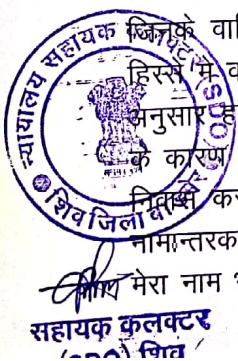 जिनके वारि
हिस्से में व
अनुसार ह
के कारण
निवास कर
नामान्तरक
मेरा नाम १
न्यायालय सहायक कलक्टर (SDO)
शिव जिला बा
सहायक कलक्टर
(SDO) शिव